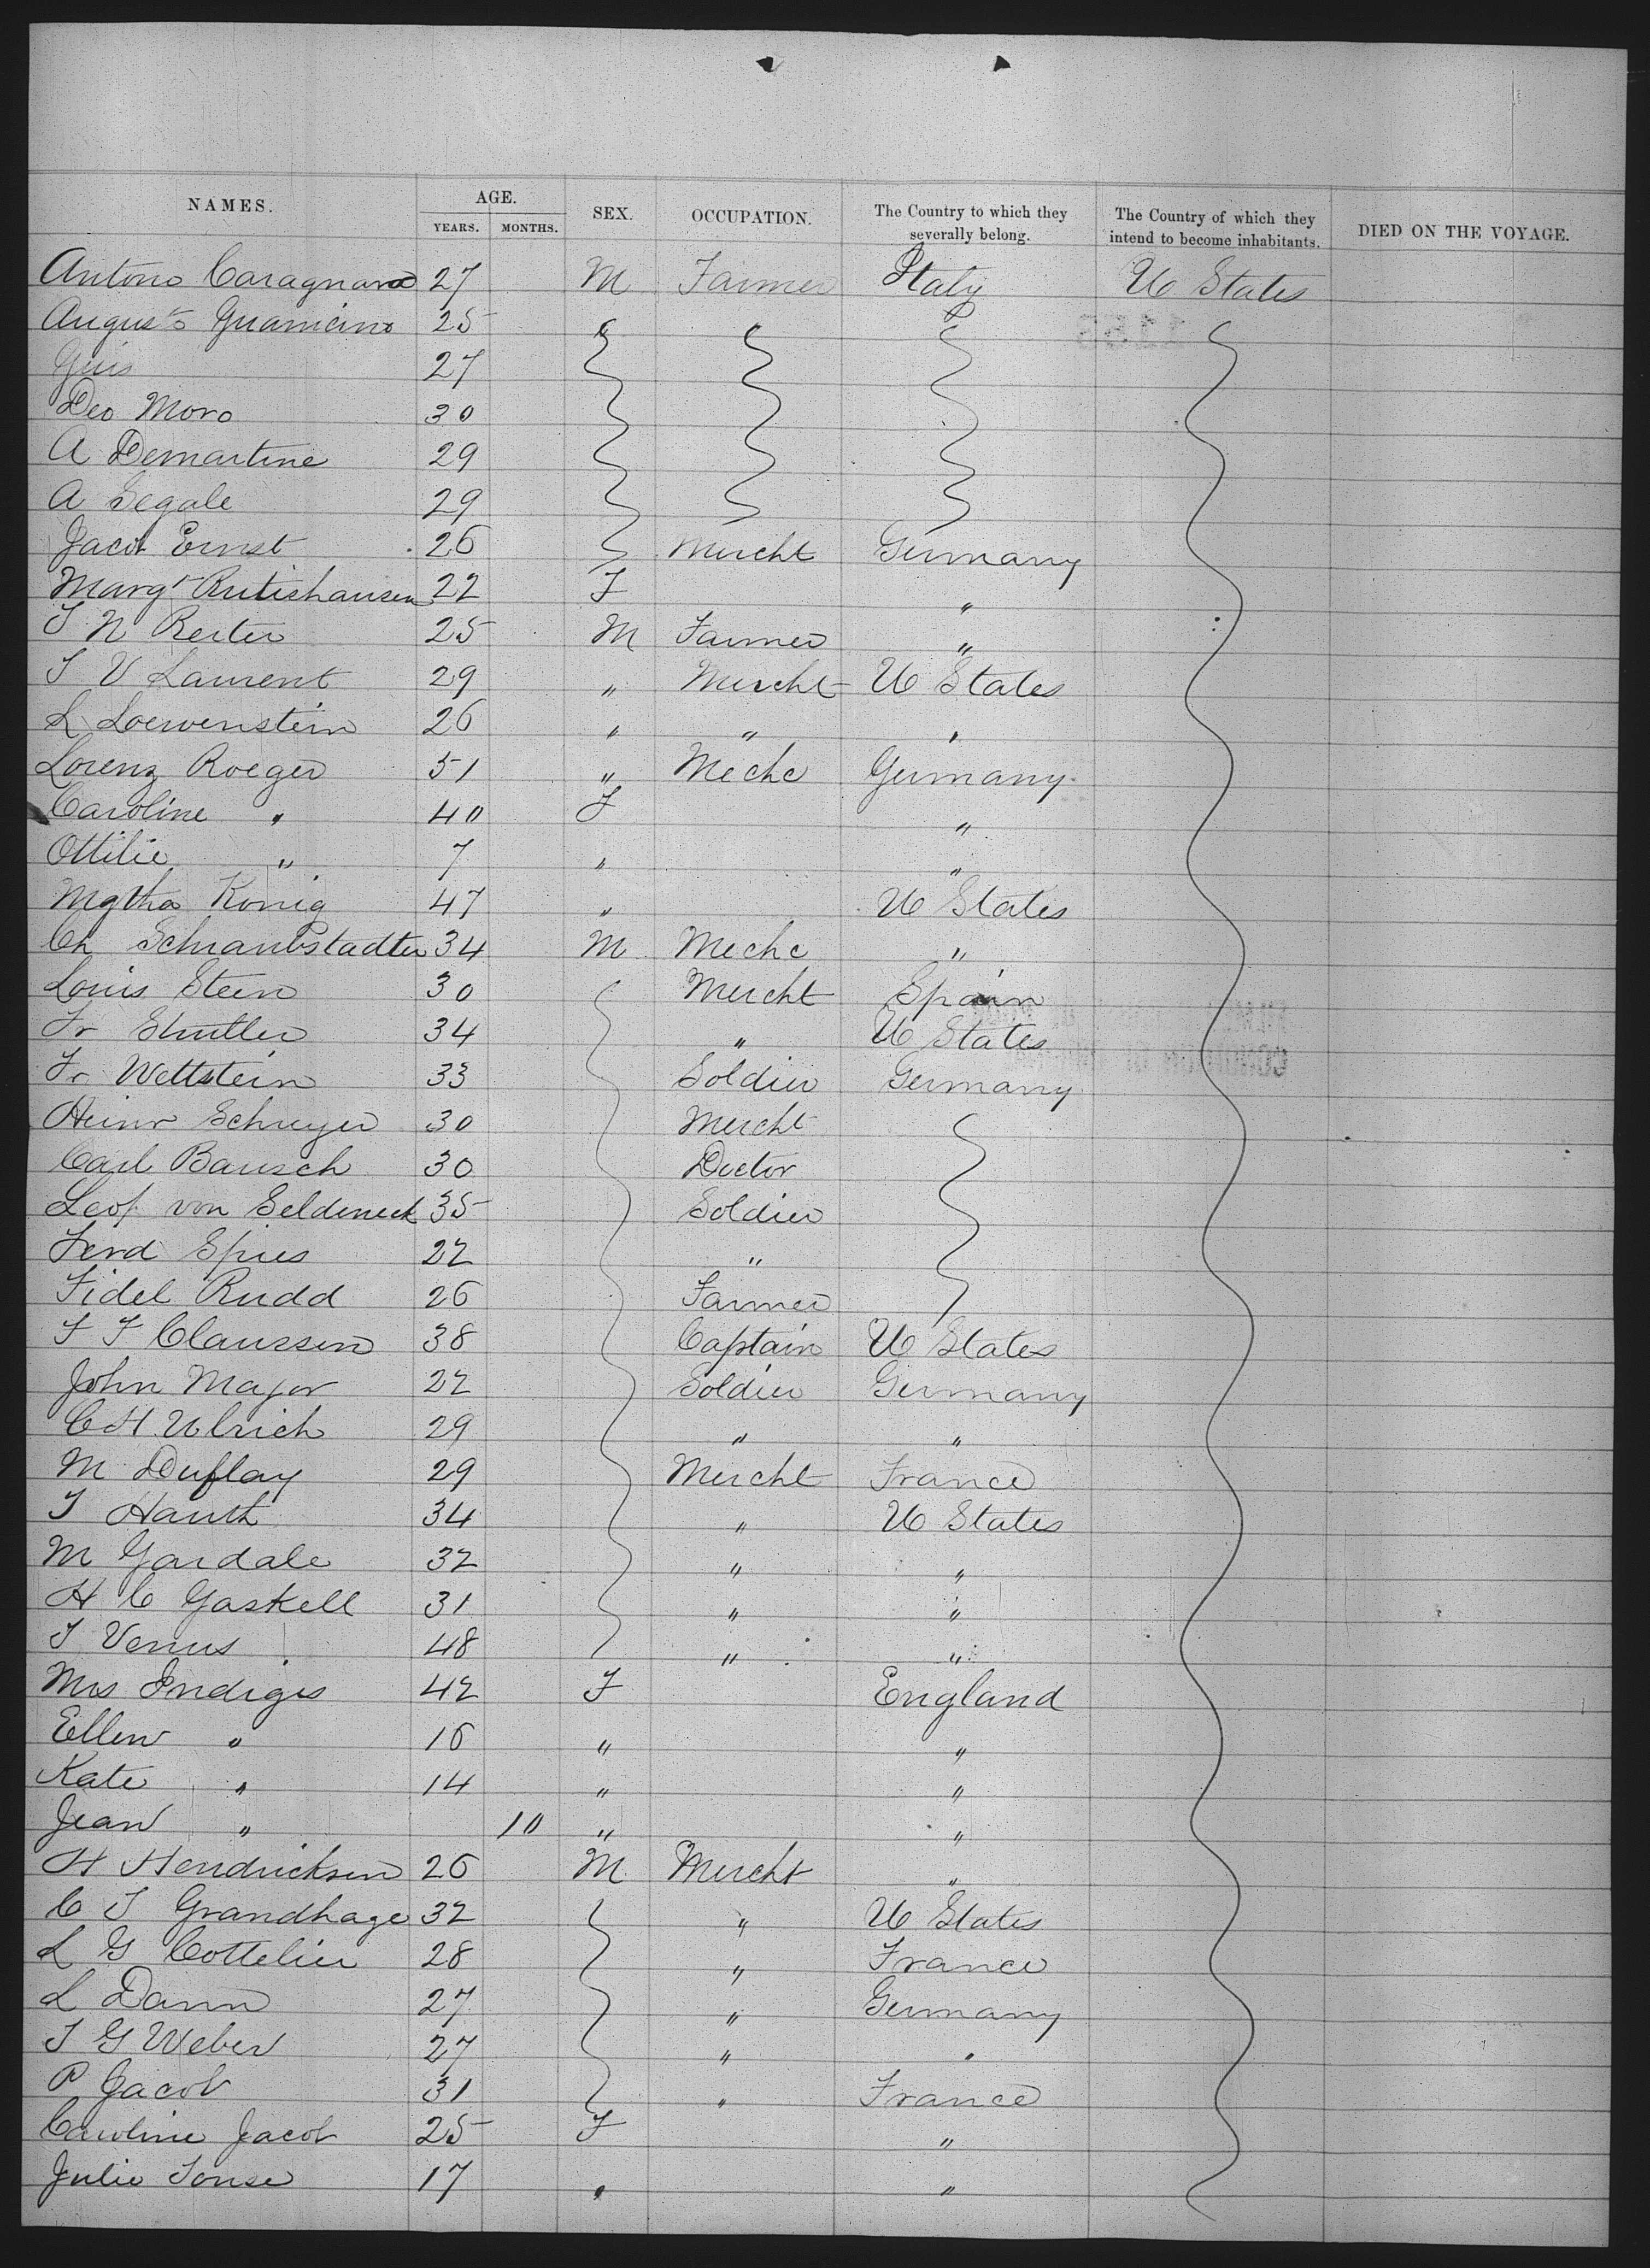 NAMES. AGE. SEX. OCCUPATION. The Country to which they severally belong. The Country of which they intend to become inhabitants. DIED ON THE VOYAGE.
YEARS. MONTHS.
Antono Caragnara 27 M Farmer Italy U States
Augusto Guamcino 25 "
Guis 27
Deo Moro 30
A Demartine 29
A Segale 29
Jacob Ernst 26 Mercht Germany
Margt Rutishausen 22 F "
J N Reiter 25 M Farmer "
J V Laurent 29 " Mercht U States
L Loewenstein 26 " " "
Lorenz Roeger 51 " Mechc Germany
Caroline " 40 F "
Ottilie " 7 " "
Mgtha Konig 47 " U States
Ch Schraubstadter 34 M Mechc "
Louis Stein 30 Mercht Spain
Fr 34 " U States
Fr Wettstein 33 Soldier Germany
Heinr Schreyer 30 Mercht
Carl Bausch 30 Doctor
Leop von Seldeneck 35 Soldier
Ferd Spies 22 "
Fidel Rudd 26 Farmer
F F Claussen 38 Captain U States
John Major 22 Soldier Germany
C H Ulrich 29 " "
M Duflay 29 Mercht France
J Hauth 34 " U States
M Gardale 32 " "
H C Gaskell 31 " "
J Venus 48 " "
Mrs Endiges 42 F England
Ellen " 16 " "
Kate " 14 " "
Jean " 10 " "
H Hendricksen 26 M Mercht "
C J Grandhage 32 " U States
L G Cottelier 28 " France
L Dann 27 " Germany
J G Weber 27 " "
P Jacob 31 " France
Caroline Jacob 25 F "
Julie Tonse 17 " "